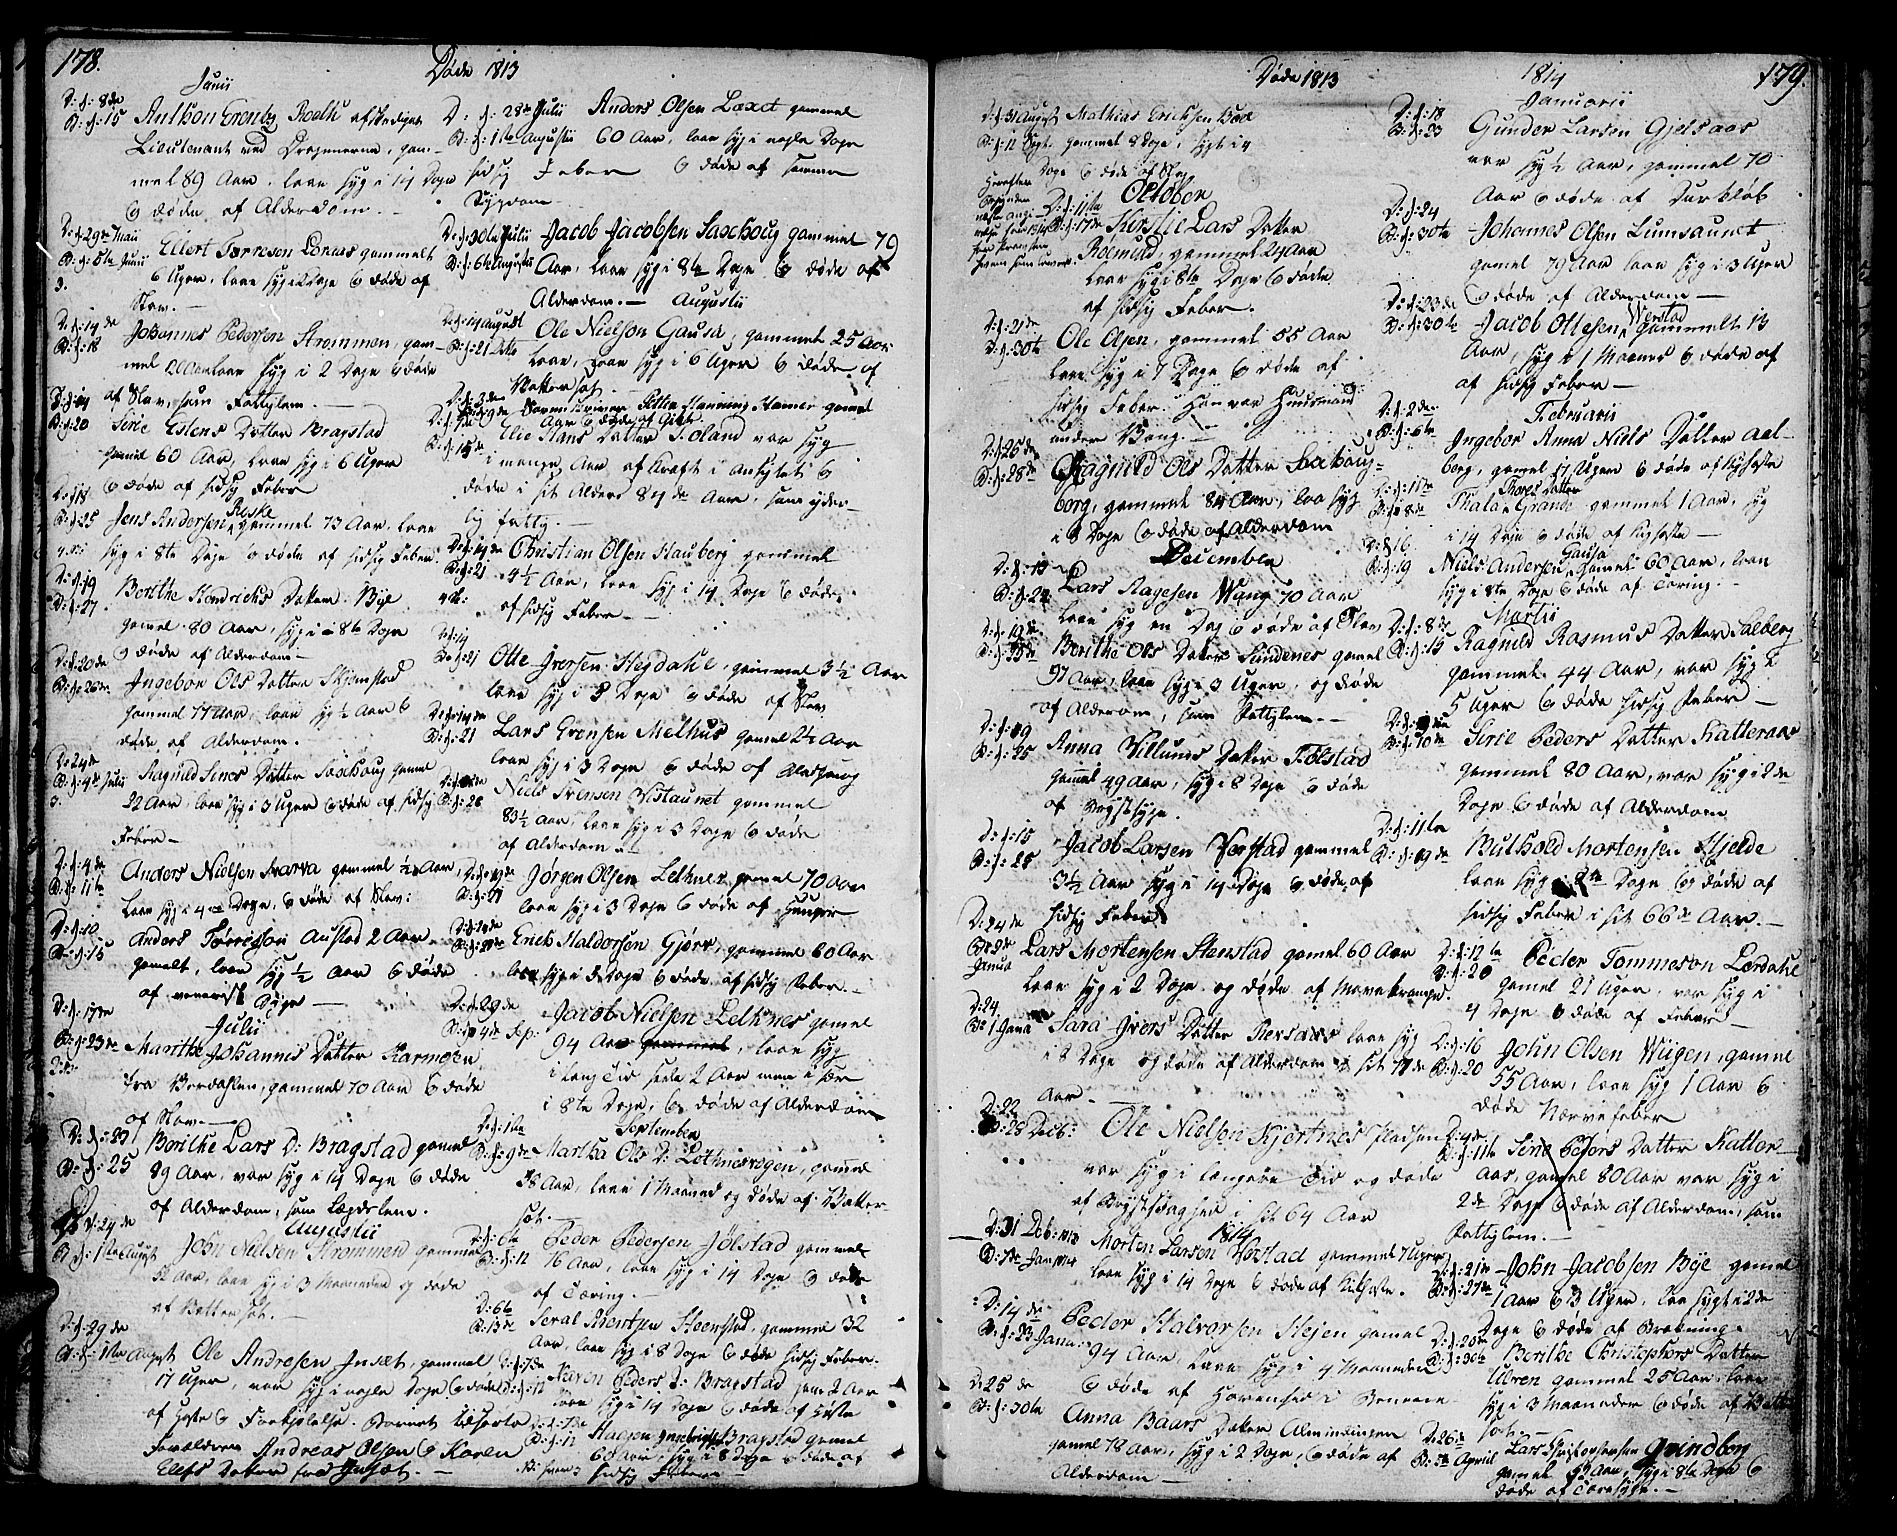 178.
Døde 1813
Junii
D: d: 8de
B: d: 15 Anthon Roeth afskediget
Lieutenant ved Dragonerne, gam-
mel 89 Aar, laae syg i 14 Dage
& døde af Alderdom.
D: d: 29de Maii
B: d: Junii Ellert Torresen gammelt
6 Uger, laae syg Dage & døde af
Slav.
D: d: 14de
B: d: 18 Johannes Pedersen Strømmen, gam-
mel Aar laae syg i 2 Dage & døde
af Slav, som Fattiglem.
B: d: 20 Sirie Estens Datter Bragstad
gamel 60 Aar, laae syg i 6 Uger
& døde af hidsig Feber
B: d: 25 Jens Andersen Røske gammel 73 Aar, laae
syg i 8te Dage & døde af hidsig Feber
D: d: 19
B: d: 27 Berithe Hendrichs Datter Bye
gamel 80 Aar, syg i 8te Dage
& døde af Alderdom
D: d: 20de
B: d: 26de Ingebor Ols Datter Skjemstad
gammel 77 Aar, laae syg ½ Aar &
døde af Alderdom.
D: 24de
B: d: 4de Julii Ragnild Datter Saxhoug gamel
22 Aar, laae syg i 3 Uger & døde af hidsig
Feber
D: d: 4de
B: d: 11te Anders Nielsen Svarva gammel ½ Aar,
laae syg i 4 Dage, & døde af Slav:
D: d: 10
B: d: 15 Anders Torresen Austad 2 Aar
gamelt, laae syg ½ Aar & døde
af venerisk Syge
D: d: 17de
Julii
B: d: 23de Marithe Johannis Datter Karmoen
fra Værdahlen, gammel 70 Aar & døde
af Slav.
B: d: 25 Berithe Lars D: Bragstad gamel
89 Aar, var syg i 14 Dage & døde
af Alderdom, som Lægdslem.
Augustii
D: 24de
B: d: 1ste August John Nielsen Strømmen gammel
52 Aar, laae syg i 3 Maaneder og døde
af Vattersot.
D: d: 29de
B: d: 1ste August Ole Andresen Inset, gammel
17 Uger, var syg i nogle Dage & døde
af Hoste & Forkjølelse. Barnets
Forældre Andreas Olsen & Karen
Elefs Datter fra Inset.
D: d: 28de Julii Anders Olsen Laxet gammel
B: d: 1ste Augustii 60 Aar, laae syg i nogle Dage
hidsig Feber & døde af samme
Sygdom
D: d: 30te Julii Jacob Jacobsen Saxhoug gammel 79
B: d: 6te Augustii Aar, laae syg i 8te Dage & døde af
Alderdom. Augustii
D: d: 14 August
B: d: 21 Ole Nielsen Gausa, gammel 25 Aar
laae syg i 6 Uger & døde af
Vattersot.
Elie Hans Datter Foland var syg
i mange Aar af Kræft i Ansigtet &
døde i sit Alders 84de Aar, som yder-
lig fattig.
D: d: 14de
B: d: 21 Christian Olsen Hauberg gammel
4½ Aar, laae syg i 14 Dage & døde
af hidsig Feber
D: d: 14
B: d: 21 Otte Iversen Hegdahl, gammel 3½ Aar
laae syg i 8 Dage & døde af Slav
D: d: 14de
B: d: 21 Lars Evensen Melhus gamel 2½ Aar
laae syg i 3 Dage & døde af
B: d: 28 Niels Svensen Vistaunet gammel
83½ Aar, laae syg i 3 Dage & døde
af Alderdom.
Jørgen Olsen Lethnes gamel 70 Aar
laae syg i 3 Dage & døde af
Erich Haldorsen Gjørv, gammel 60 Aar
laae syg i 8 Dage & døde af hidsig Feber
D: d: 29de
B: d: 4de Sep: Jacob Nielsen Lethnes gamel
94 Aar, laae syg
i lang Tid hele 2 Aar men i sær
i 8te Dage, & døde af Alderdom
September
D: d: 1ste
B: d: 9de Martha Ols D: Lethnesvegen, gamel
38 Aar, laae 1 Maaned og døde af Vatter-
sot.
B: d: 12 Peder Pedersen Jølstad gammel
16 Aar, laae syg i 14 Dage & døde
af Tæring.
D: 6te
B: 13de Seval Arentsen Steenstad, gammel 32
Aar, laae syg i 8 Dage & døde hidsig Feber.
Karen Peders D: Bragstad, gam 2 Aar
laae syg i 14 Dage & døde af Hoste
B: d: 12 Haagen Ingebrigtsen Bragstad gamel
6 Aar, syg i 8 Dage & døde af
hidsig Feber
Døde 1813
1814
179.
D: d: 31 August Mathias Erichsen
B: d: 12 Sept. gammel 8 Dage, sygt i 4
Dage & døde af Slag
October
D: d: 11te
B: d: 17de Kirstie Lars Datter
Rølmuld, gammel Aar
laae syg i 8te Dage & døde
af hidsig Feber.
D: d: 21de
B: d: 30te Ole Olsen, gammel 55 Aar
laae syg i 7 Dage & døde af
hidsig Feber. Han var Huusmand
under Vang.
D: d: 26de
B: d: 28de Ragnild Ols Datter Saxhoug-
berg, gammel 84 Aar, laae syg
i 8 Dage & døde af Alderdom
December
D: d: 15
B: d: 22 Lars Aagesen Wang 70 Aar
laae syg en Dag & døde af
D: d: 19de
Berithe Ols Datter Sundnes gamel
97 Aar, laae syg i 3 Uger, og døde
af Alderdom, som Fattiglem.
D: d: 19
B: d: 25 Anna Villums Datter Følstad
gammel 49 Aar, syg i 8 Dage & døde
af Brystsyge.
D: d: 15
B: d: 25 Jacob Larsen Verstad gammel
3½ Aar syg i 14 Dage & døde af
hidsig Feber
D: 24de
Janua Lars Mortensen Steenstad gamel 60 Aar
laae syg i 2 Dage og døde af Mavekrampe.
D: 24
B: 1 Janu Sara Ivers Datter Bersaas laae syg
i 8 Dage og døde af Alderdom i sit 77de
Aar
D: 22
B: 28 Decb: Ole Nielsen Kjertnes
var syg i langere Tid og døde
af Brystsvaghed i sit 64 Aar
1814
D: 31 Deb: 1813
Jan 1814 Morten Larsen Verstad gammel 7 Uger
laae syg i 14 Dage & døde af Kighoste.
D: 14de
B: d: 23 Janu: Peder Halvorsen Hegen gamel
94 Aar, laae syg i 4 Maaneder
& døde af Hovenhed i Benene
D: 25de
B: d: 30te Anna Baars Datter Almindingen
gamel 78 Aar, syg i 2 Dage, & døde af
Alderdom
Januarii
D: d: 18
B: d: 23 Gunder Larsen Gjelsaas
var syg ½ Aar, gammel 70
Aar & døde af Durkløb
D: d: 24
B: d: 30te Johannes Olsen Lumsaunet
gamel 79 Aar laae syg i 3 Uger
& døde af Alderdom
D: d: 23de
B: d: 30te Jacob Ottesen Werstad gammelt 13
Aar, syg i 1 Maaned & døde af
hidsig Feber
Februarii
D: d: 2de
B: d: 6te Ingebor Anna Niels Datter Aal-
berg, gamel 17 Uger & døde af Kighoste
Thale Thores Datter Grande gammel 1 Aar, syg
i 14 Dage & døde af Kighoste
D: d: 16
B: d: 19 Niels Andersen Gausa gamel 60 Aar, laae
syg i 8te Dage & døde af Tæring.
Martii
B: d: 15 Ragnild Rasmus Datter Salberg
gammel 44 Aar, var syg i
5 Uger & døde hidsig Feber
B: d: 10de Sirie Peders Datter Katteraas
gammel 80 Aar, var syg i 2de
Dage & døde af Alderdom
D: d: 11te
B: d: 19de Buthold Mortensen Hjelde
laae syg i 8te Dage & døde af
hidsig Feber i sit 66de Aar.
D: d: 12te
B: d: 20 Peder Tommeson Lerdahl
gamel 21 Uger, var syg i
4 Dage & døde af Feber
D: d: 16
B: d: 20 John Olsen Wiigen, gamel
55 Aar, laae syg 1 Aar &
døde Nervefeber
D: 4de
B: d: 11te Sirie Peders Datter Katter-
aas, gamel 80 Aar var syg i
2de Dage & døde af Alderdom, som
Fattiglem.
D: d: 21de
B: d: 27de John Jacobsen Bye gamel
1 Aar & 3 Uger, laae sygt i 2de
Dage & døde af Brækning
D: d: 20de
B: d: 30te Berithe Christophers Datter
Ulven gammel 25 Aar, laae
syg i 3 Maaneder & døde af Vatter
sot.
D: 26de
April Lars Kristophersen Grindberg
gamel Aar, syg i 8te Dage &
døde af